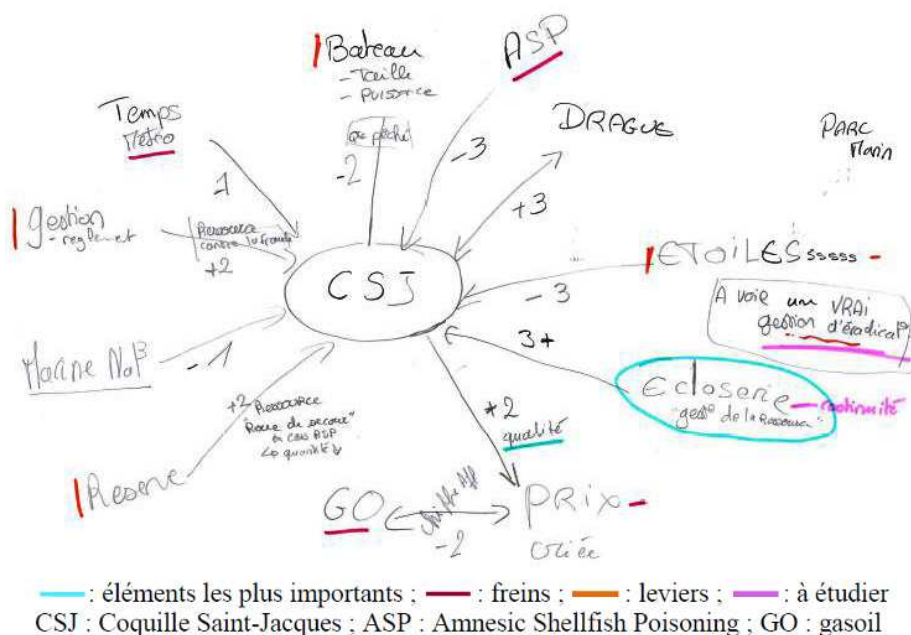 Bateau
- Taille
- Puissance
-2
ASP
-3
DRAGUE
+3
PARC
Marin
Temps
Météo
-1
gestion
- reglement
Ressource
contre la fraude
+2
CSJ
ETOILES sssss -
- 3
A voir un VRAI
gestion d'éradicat°
Marine Nat
-1
3+
Ecloserie - continuité
"gest° de la Ressource"
+2
Ressource
"Roue de secours"
en cas ASP
quantité
Reserve
+2
qualité
GO
Chiffre Aff
-2
PRIX -
criée
: éléments les plus importants ; : freins ; : leviers ; : à étudier
CSJ : Coquille Saint-Jacques ; ASP : Amnesic Shellfish Poisoning ; GO : gasoil